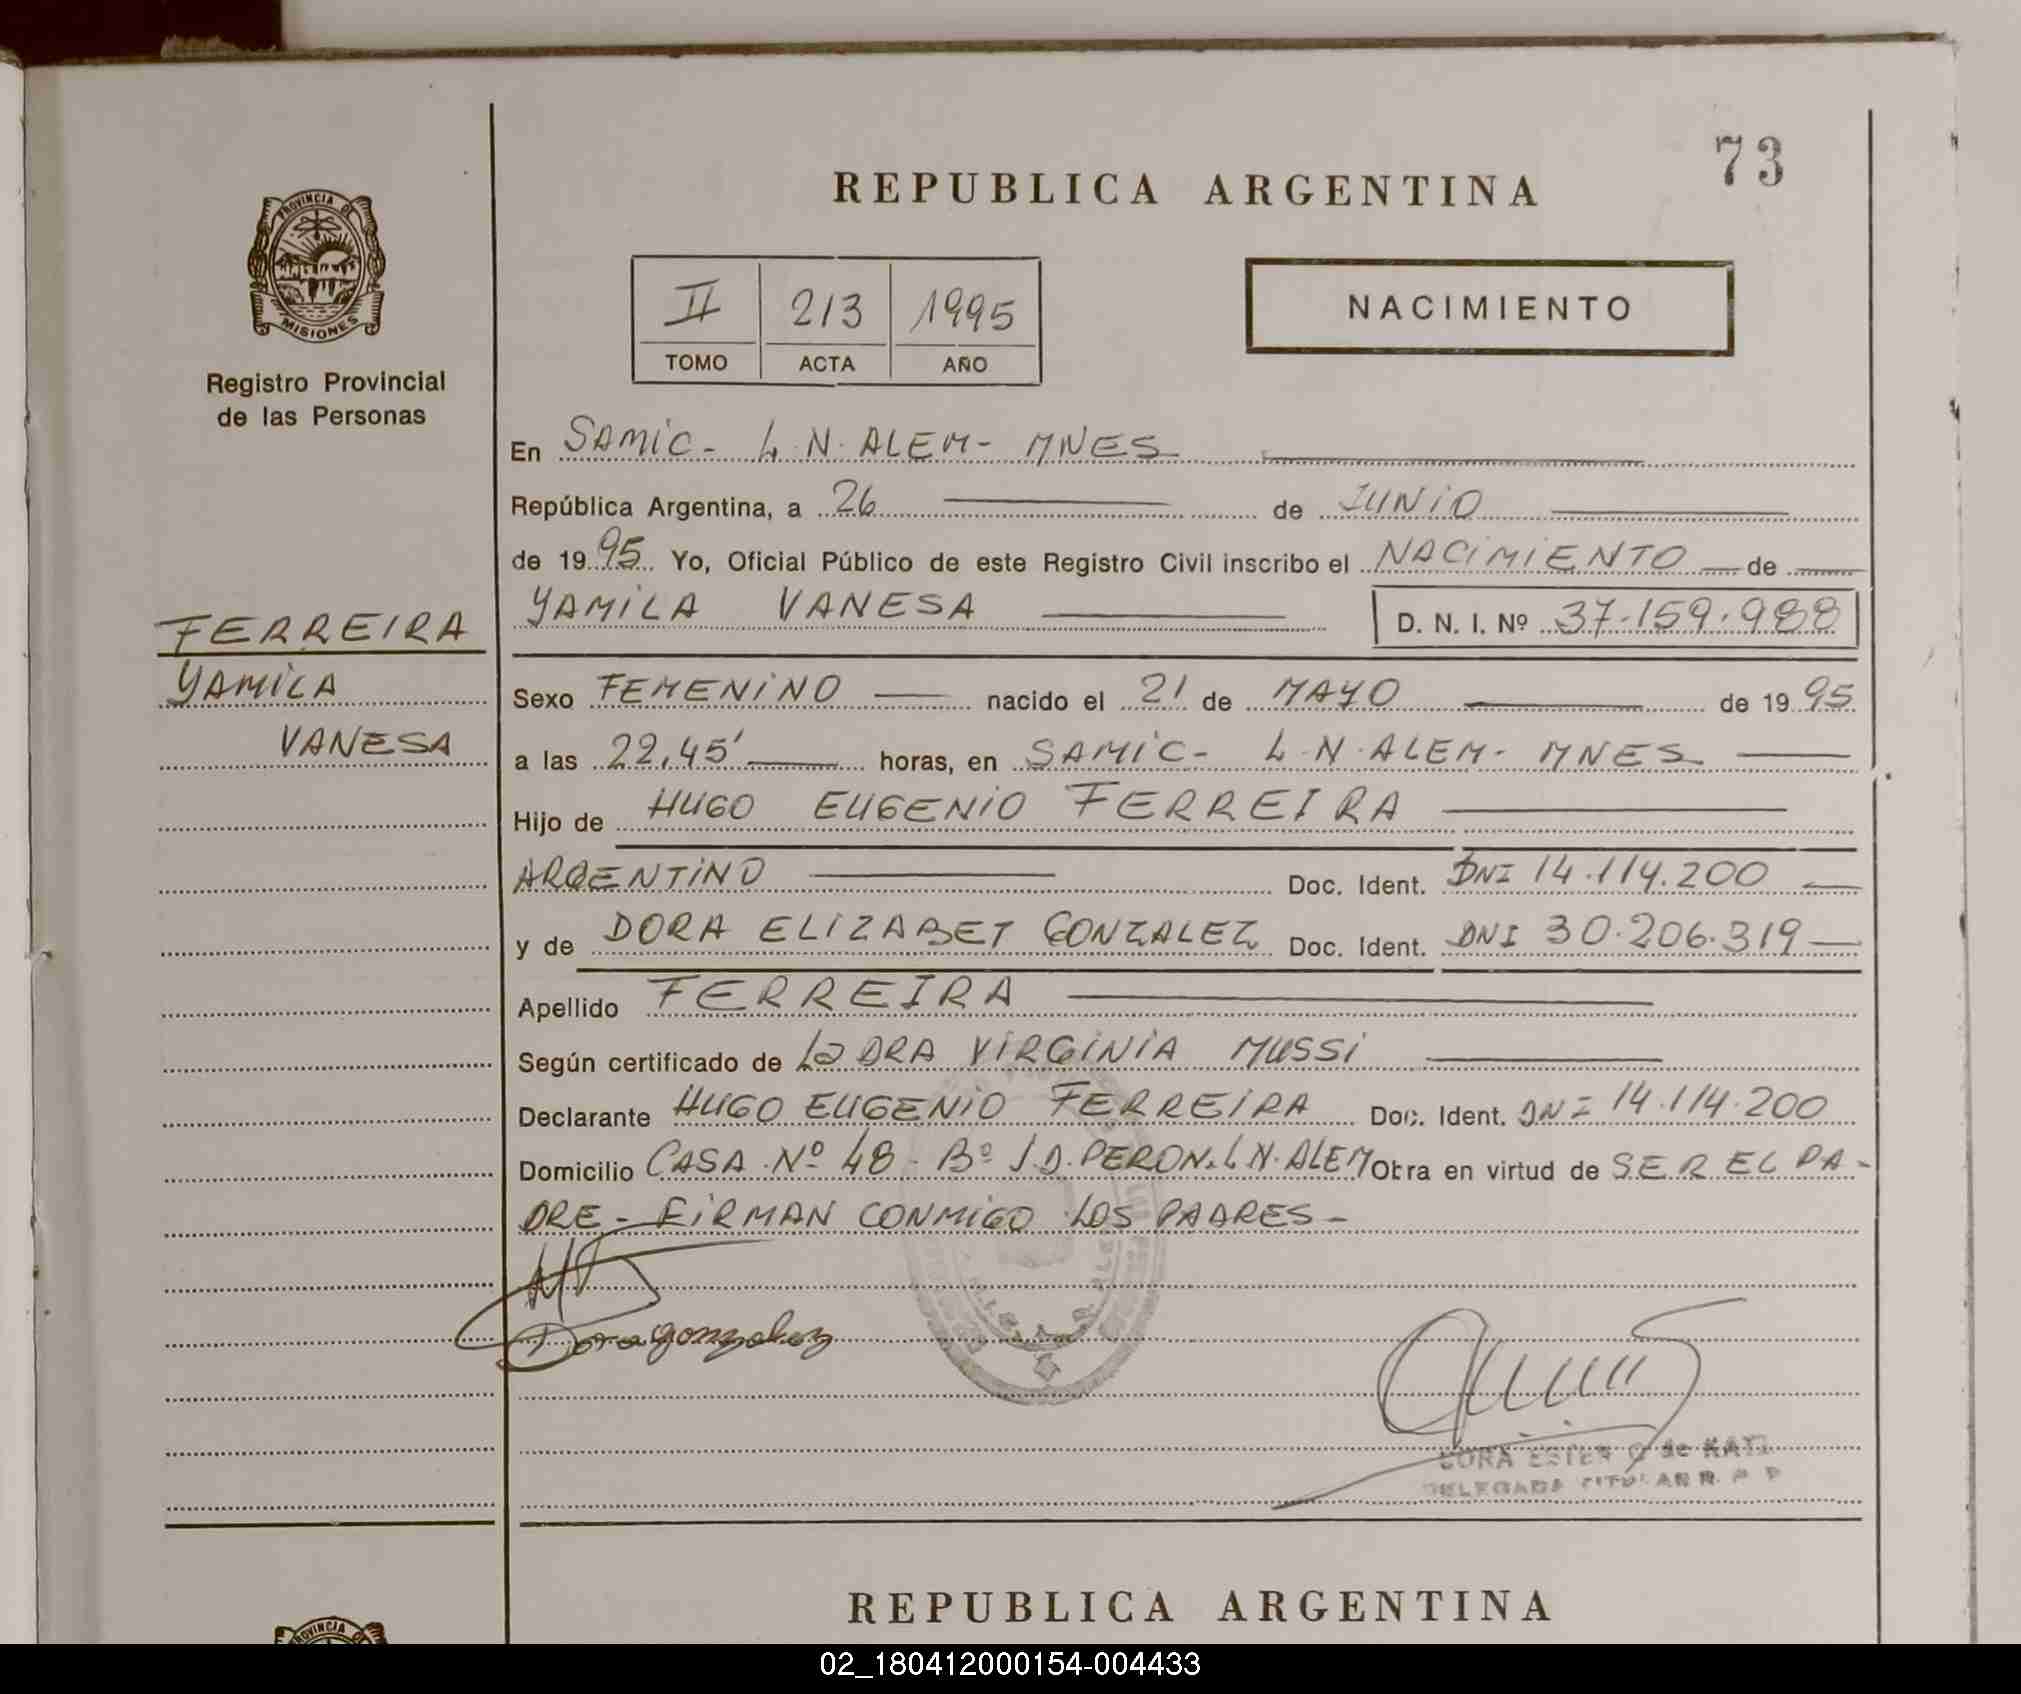 73
REPUBLICA ARGENTINA
PROVINCIA DE
MISIONES
Registro Provincial
de las Personas
II 213 1995
TOMO ACTA AÑO
NACIMIENTO
En SAMIC- L.N. ALEM- MNES
República Argentina, a 26 de JUNIO
de 1995 Yo, Oficial Público de este Registro Civil inscribo el NACIMIENTO de
YAMILA VANESA D. N. I. Nº 37.159.988
FERREIRA
YAMILA
VANESA
Sexo FEMENINO nacido el 21 de MAYO de 1995
a las 22,45' horas, en SAMIC- L.N. ALEM- MNES
Hijo de HUGO EUGENIO FERREIRA
ARGENTINO Doc. Ident. DNI 14.114.200
y de DORA ELIZABET GONZALEZ Doc. Ident. DNI 30.206.319
Apellido FERREIRA
Según certificado de La DRA VIRGINIA MUSSI
Declarante HUGO EUGENIO FERREIRA Doc. Ident. DNI 14.114.200
Domicilio CASA Nº 48 - Bº J.D. PERON. L.N. ALEM Obra en virtud de SER EL PA-
DRE - FIRMAN CONMIGO LOS PADRES -
Dora gonzalez
ESTER G de
DELEGADA TITULAR R. P. P
REPUBLICA ARGENTINA
PROVINCIA DE
02_180412000154-004433